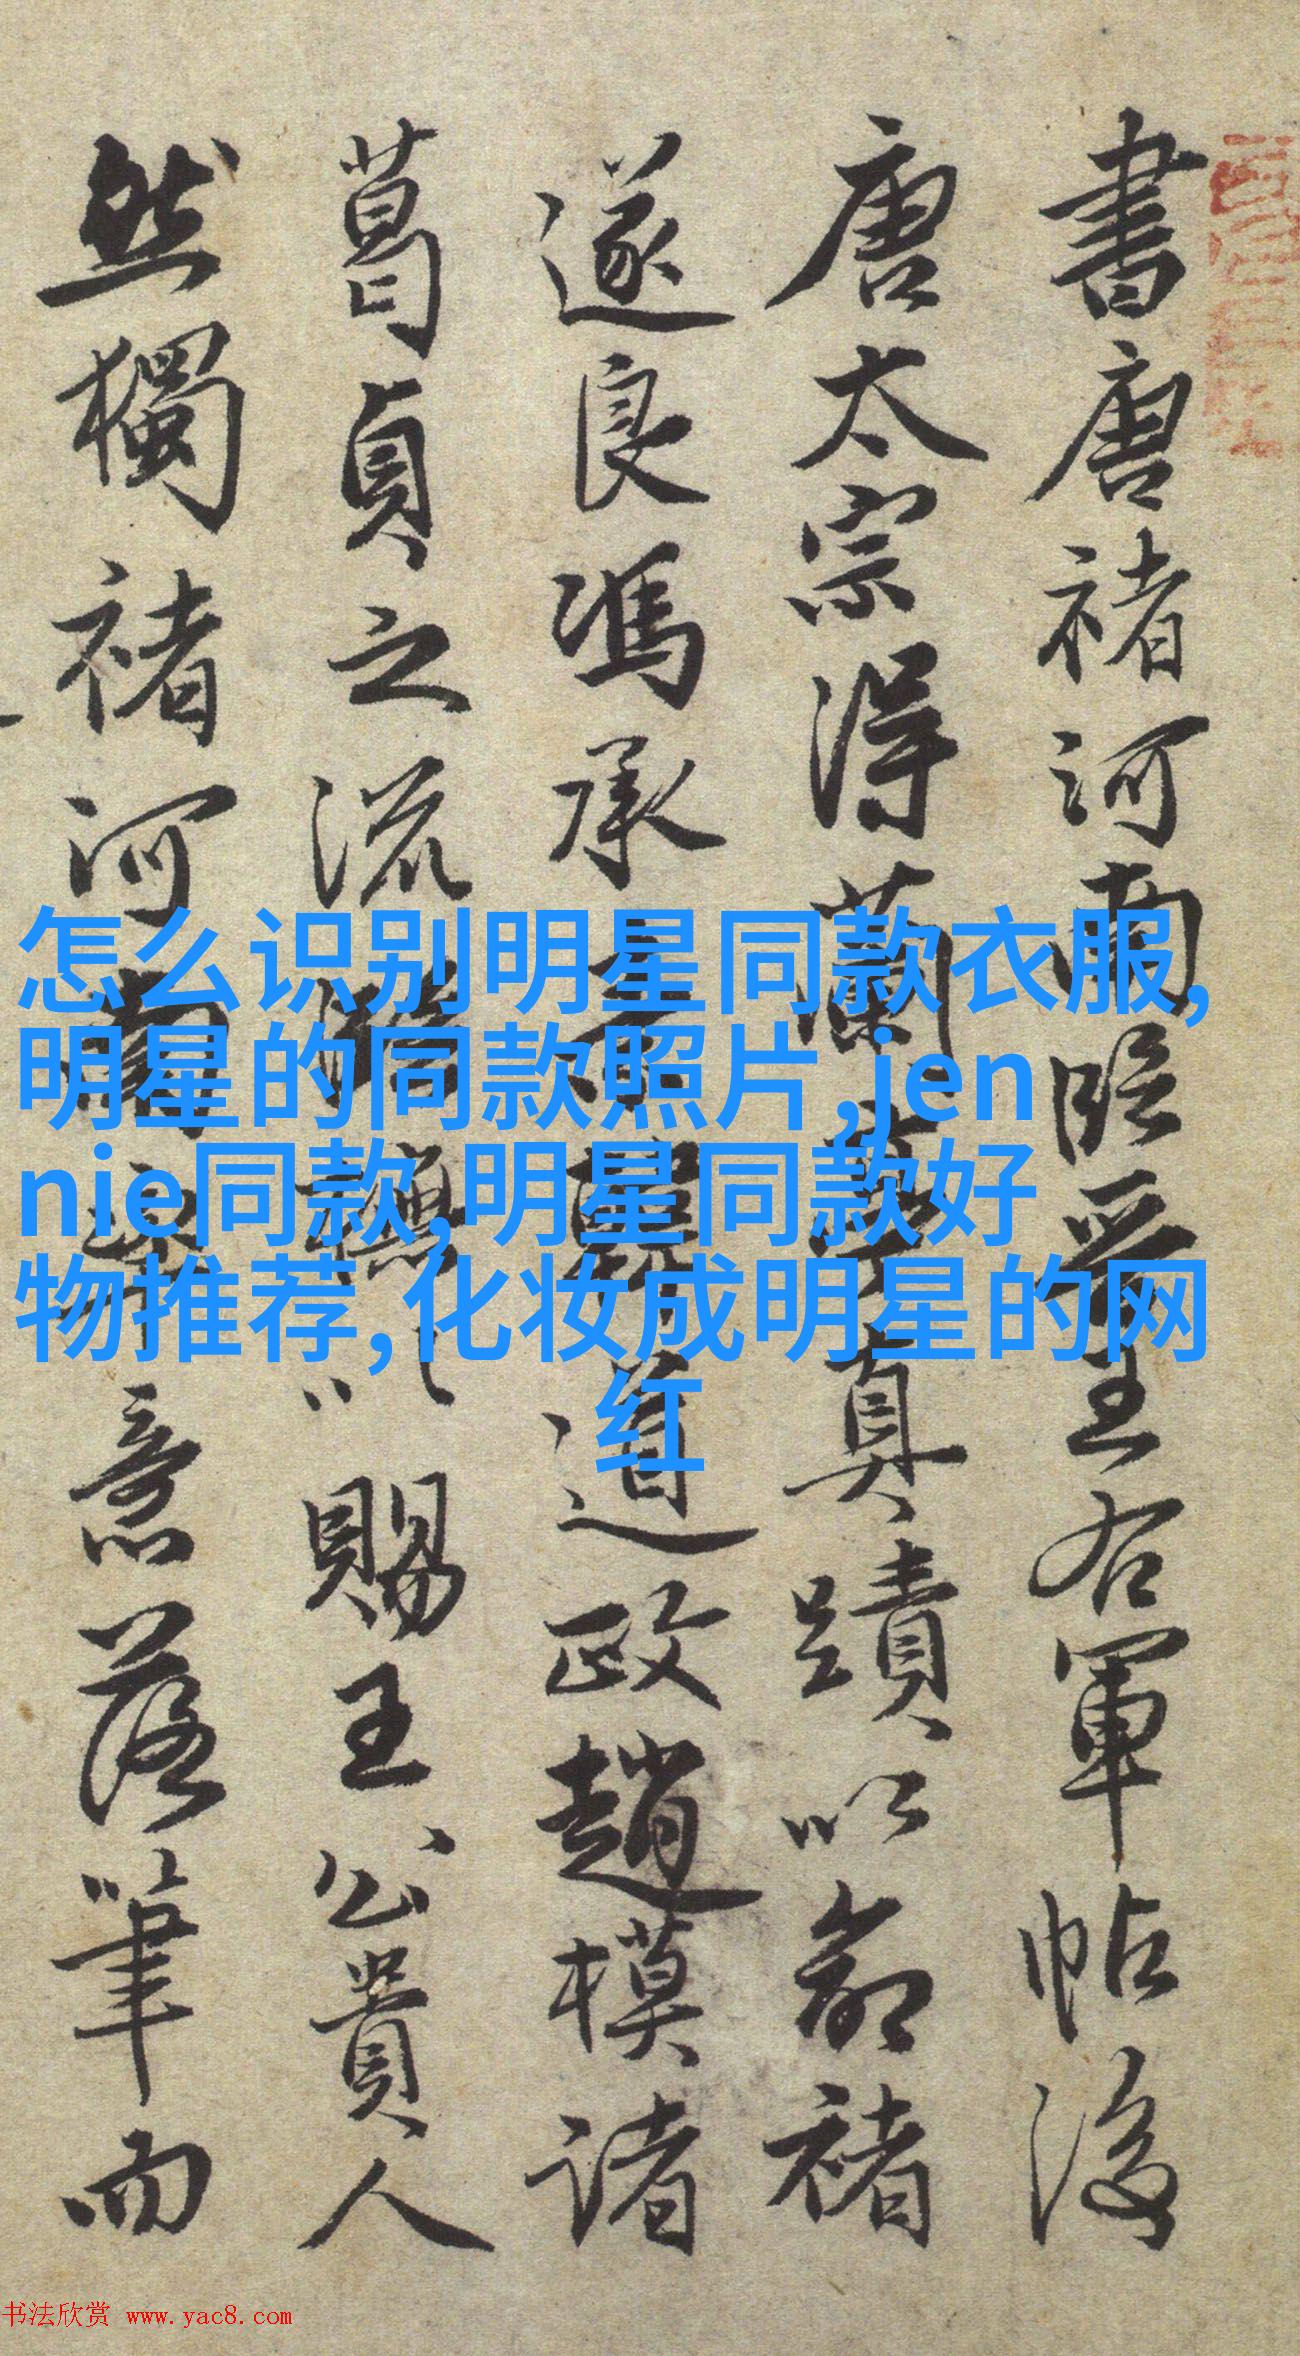 書唐褚河南臨晉王右軍帖後
唐太宗得蘭亭真蹟以命褚
遂良馮承素韓道政趙模諸
葛貞之流橅以賜王公貴人
然獨褚河南意落筆而
怎么识别明星同款衣服,
明星的同款照片,jen
nie同款,明星同款好
物推荐,化妆成明星的网
红
书法欣赏 www.yac8.com